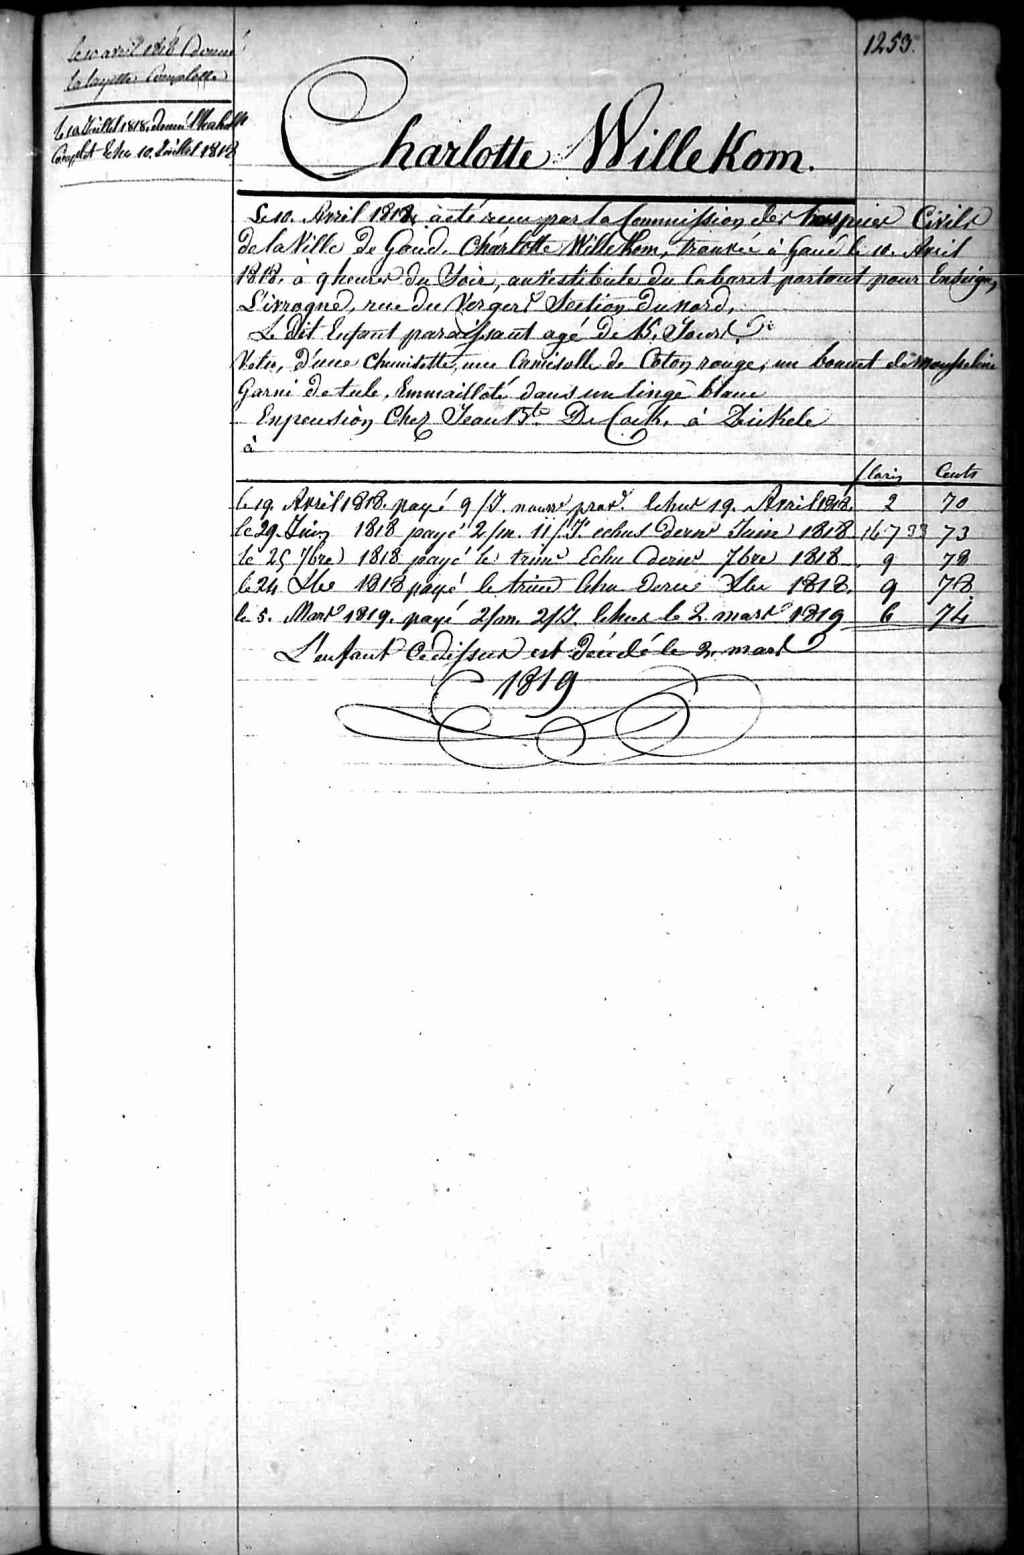 1253.
le 10 avril 1818 Donné
la layette Complette
le 10 Juillet 1818. donné
Complet Echu 10. Juillet 1818
Charlotte Willekom.
Le 10. Avril 1818, a été reçu par la Commission des hospices Civils
de la Ville de Gand. Charlotte Willekom, trouvée à Gand le 10. Avril
1818. à 9 heures du Soir, au vestibule du Cabaret portant pour Enseigne,
L'ivrogne, rue du Verger Section du nord,
Le dit Enfant paraissant agé de 15. Jours.
Vetu, d'une Chemisette, une Camisolle de Coton rouge, un bonnet de mousseline
Garni de tule, Emmailloté dans un linge blanc
En pension Chez Jean Bte De Cock, à
à
florins Cents
le 19. Avril 1818. payé 9 /J. nour prov. Echus 19. Avril 1818. 2 70
le 29. Juin 1818 payé 2/m. 11/J. echus dernr Juin 1818 16 7 33 73
le 25 7bre 1818 payé le trime Echu dernr 7bre 1818 9 78
le 24 Xbe 1818 payé le trime Echu dernr Xbre 1818. 9 78
le 5. Mars 1819. payé 2/m. 2/J. Echus le 2. mars 1819 6 74
L'enfant Cedessus est Décédé le 2. mars
1819